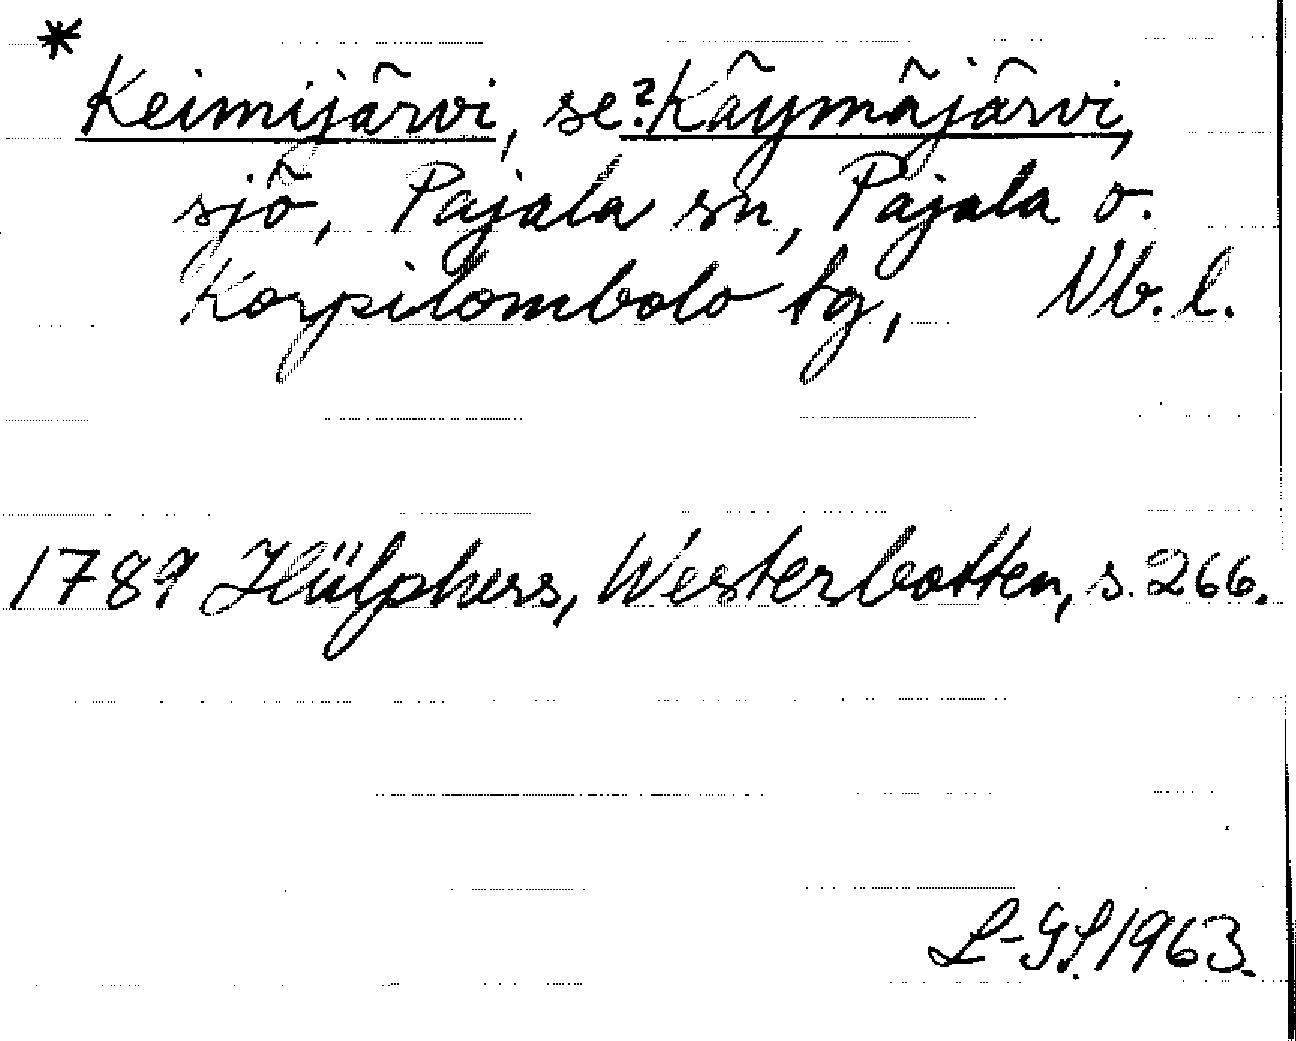 *
Keimijärvi, se ?Käymäjärvi,
sjö, Pajala sn, Pajala o.
Korpilombolo tg, Nb. l.
1789 Hülphers, Westerbotten, s. 266.
L-GL 1963.